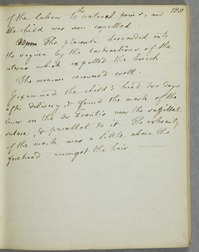 109
of the labour the natural pains, and
the child was soon expelled.
The placenta descended into
the vagina by the contractions of the
uterus which expelled the breech
The woman recovered well.
I examined the child's head two days
after delivery, & found the mark of the
on the os frontis near the sagittal
suture, & parallel to it. The extremity
of the mark was a little above the
forehead amongst the hair.